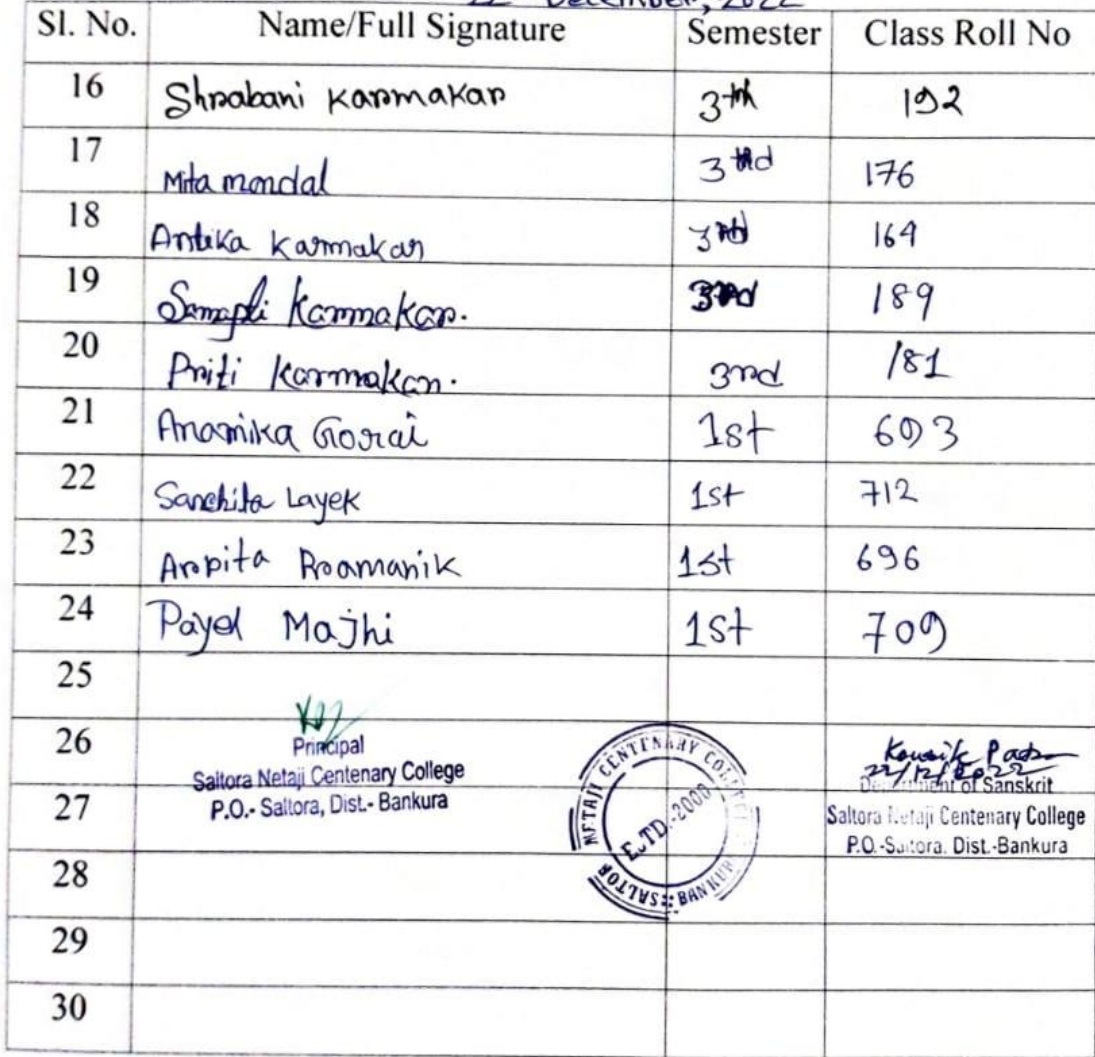 22 December, 2022
Sl. No. Name/Full Signature Semester Class Roll No
16 Shrabani Karmakar 3th 192
17 Mita mondal 3rd 176
18 Antika Karmakar 3rd 169
19 Samapti Karmakar. 3rd 189
20 Priti Karmakar. 3rd 181
21 Anamika Gorai 1st 693
22 Sanchita Layek 1st 712
23 Arpita Pramanik 1st 696
24 Payel Majhi 1st 709
25
26
Principal
Saltora Netaji Centenary College
P.O.- Saltora, Dist.- Bankura
NETAJI CENTENARY COLLEGE
ESTD.-2000
SALTORA :: BANKURA
Kousik
22/12/2022
Department of Sanskrit
Saltora Netaji Centenary College
P.O.-Saltora. Dist.-Bankura
27
28
29
30